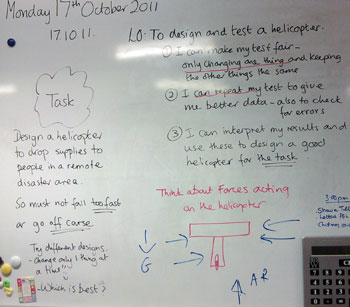 Monday 17th October 2011
17.10.11.
LO: To design and test a helicopter.
① I can make my test fair -
only changing one thing and keeping
the other things the same
② I can repeat my test to give
me better data - also to check
for errors
③ I can interpret my results and
use these to design a good
helicopter for the task
Task
Design a helicopter
to drop supplies to
people in a remote
disaster area.
So must not fall too fast
or go off corse
Try different designs.
- change only 1 thing at
a time!!
- Which is best?
Think about Forces acting
on the helicopter
G
AR
3:00pm